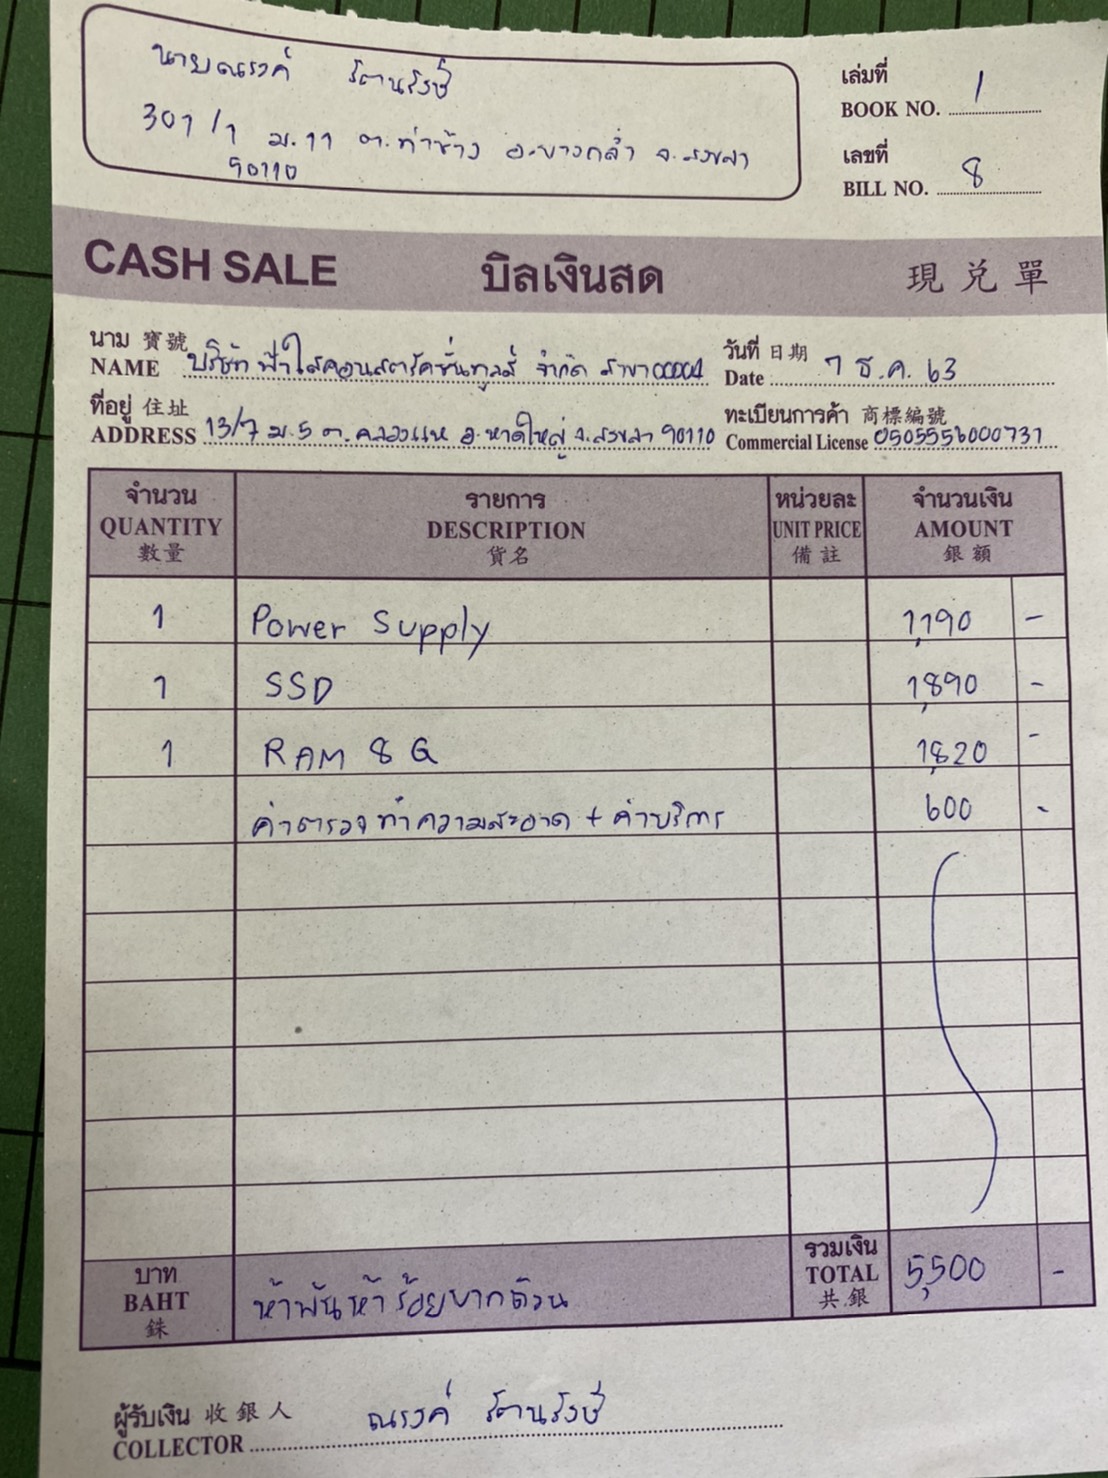 นายณรงค์ รัตนรังษี
301/1 ม.11 ต.ท่าช้าง อ.บางกล่ำ จ.สงขลา
90110
เล่มที่
BOOK NO. 1
เลขที่
BILL NO. 8
CASH SALE บิลเงินสด 現兑單
นาม 寶號
NAME บริษัท ฟ้าใสคอนสตรัคชั่นทูลส์ จำกัด สาขา00004
วันที่ 日期
Date 7 ธ.ค. 63
ที่อยู่ 住址
ADDRESS 13/7 ม.5 ต.คลองแห อ.หาดใหญ่ จ.สงขลา 90110
ทะเบียนการค้า 商標編號
Commercial License 0505556000731
จำนวน รายการ หน่วยละ จำนวนเงิน
QUANTITY DESCRIPTION UNIT PRICE AMOUNT
數量 貨名 備註 銀額
1 Power Supply 1,190 -
1 SSD 1,890 -
1 RAM 8 G 1,820 -
ค่าตรวจทำความสะอาด + ค่าบริการ 600 -
บาท
BAHT ห้าพันห้าร้อยบาทถ้วน
銖
รวมเงิน
TOTAL 5,500 -
共銀
ผู้รับเงิน 收銀人
COLLECTOR ณรงค์ รัตนรังษี